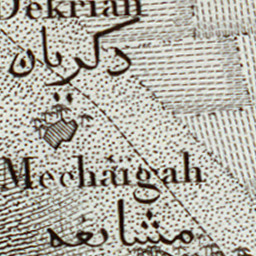 Dekrian
دكريان
Mechaïgah
مشايغه